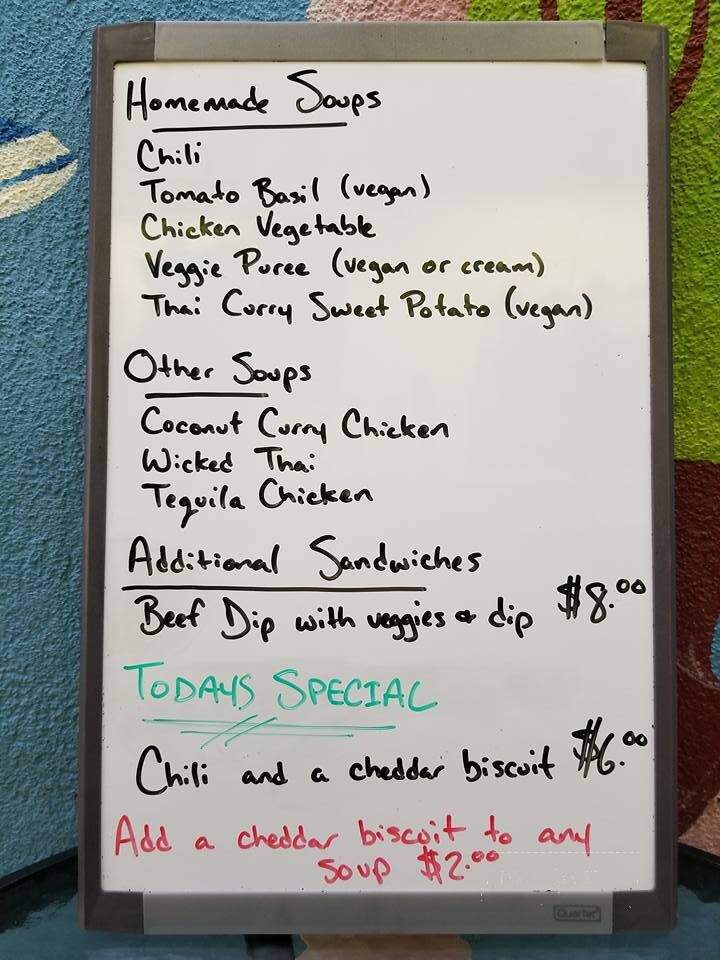 Homemade Soups
Chili
Tomato Basil (vegan)
Chicken Vegetable
Veggie Puree (vegan or cream)
Thai Curry Sweet Potato (vegan)
Other Soups
Coconut Curry Chicken
Wicked Thai
Tequila Chicken
Additional Sandwiches
Beef Dip with veggies & dip $8.00
TODAYS SPECIAL
Chili and a cheddar biscuit $6.00
Add a cheddar biscuit to any
soup $2.00
Quartet